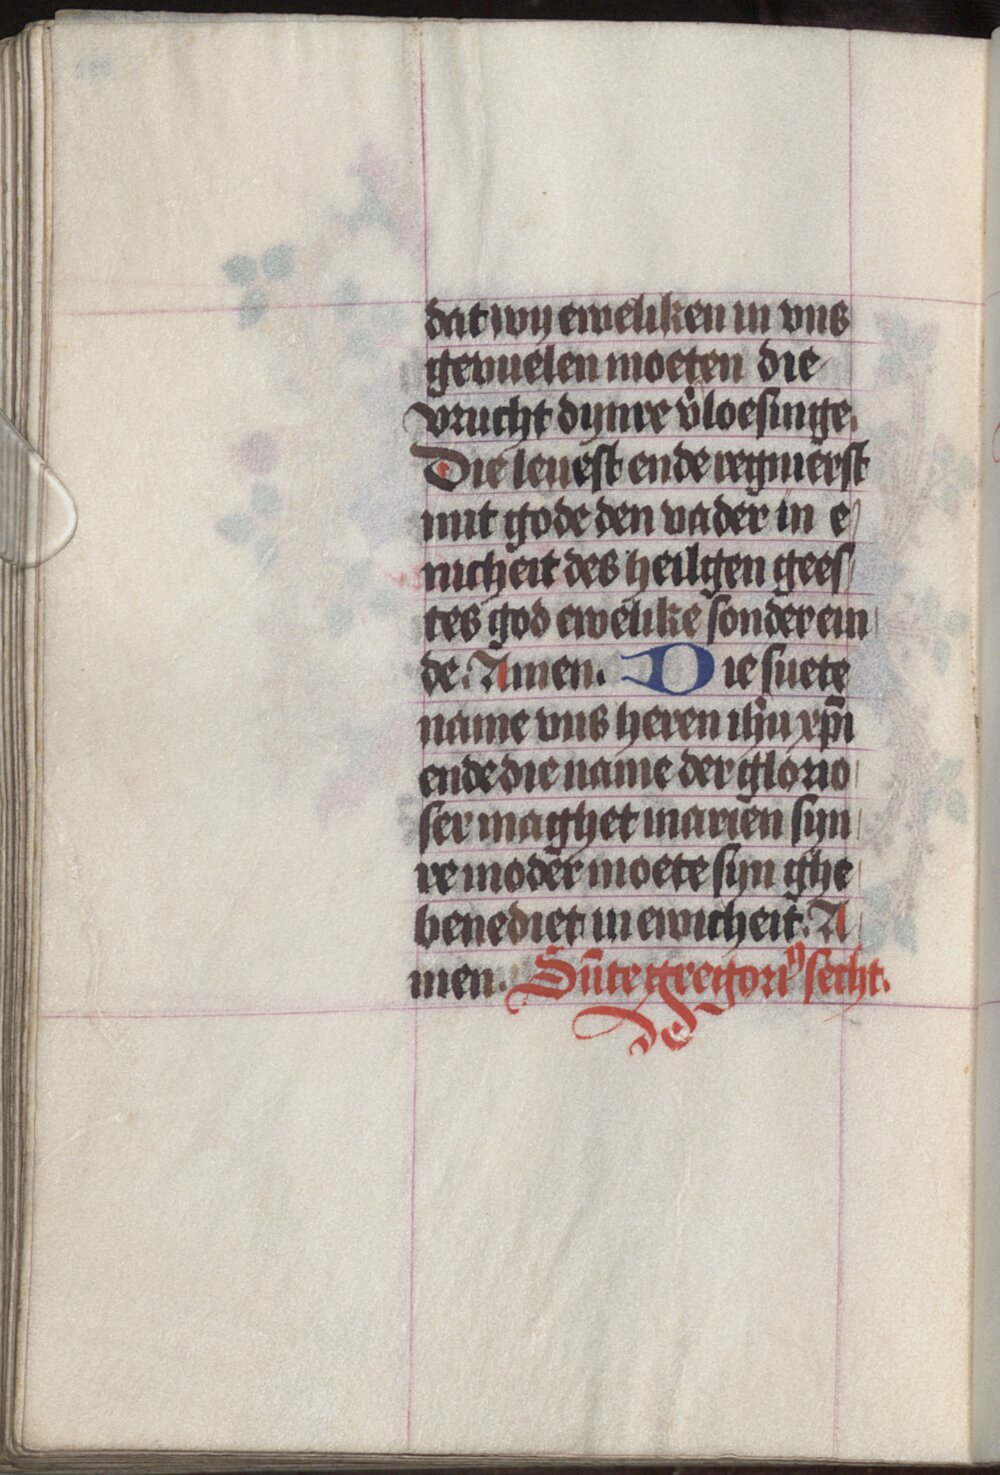 dat wy eweliken in vns
gevuelen moeten die
vrucht dynre v̄loesinge.
Die leuest ende regniērst
mit gode den vader in e
nicheit des heilgen gees
tes god ewelike sonder ein
de. Amen. Die suete
name vns heren ih̄u xp̄i
ende die name der glorio
ser maghet mariēn syn
re modēr moete syn ghe
benediet in ewicheit. A
men. Sūte gregoriꝰ secht.